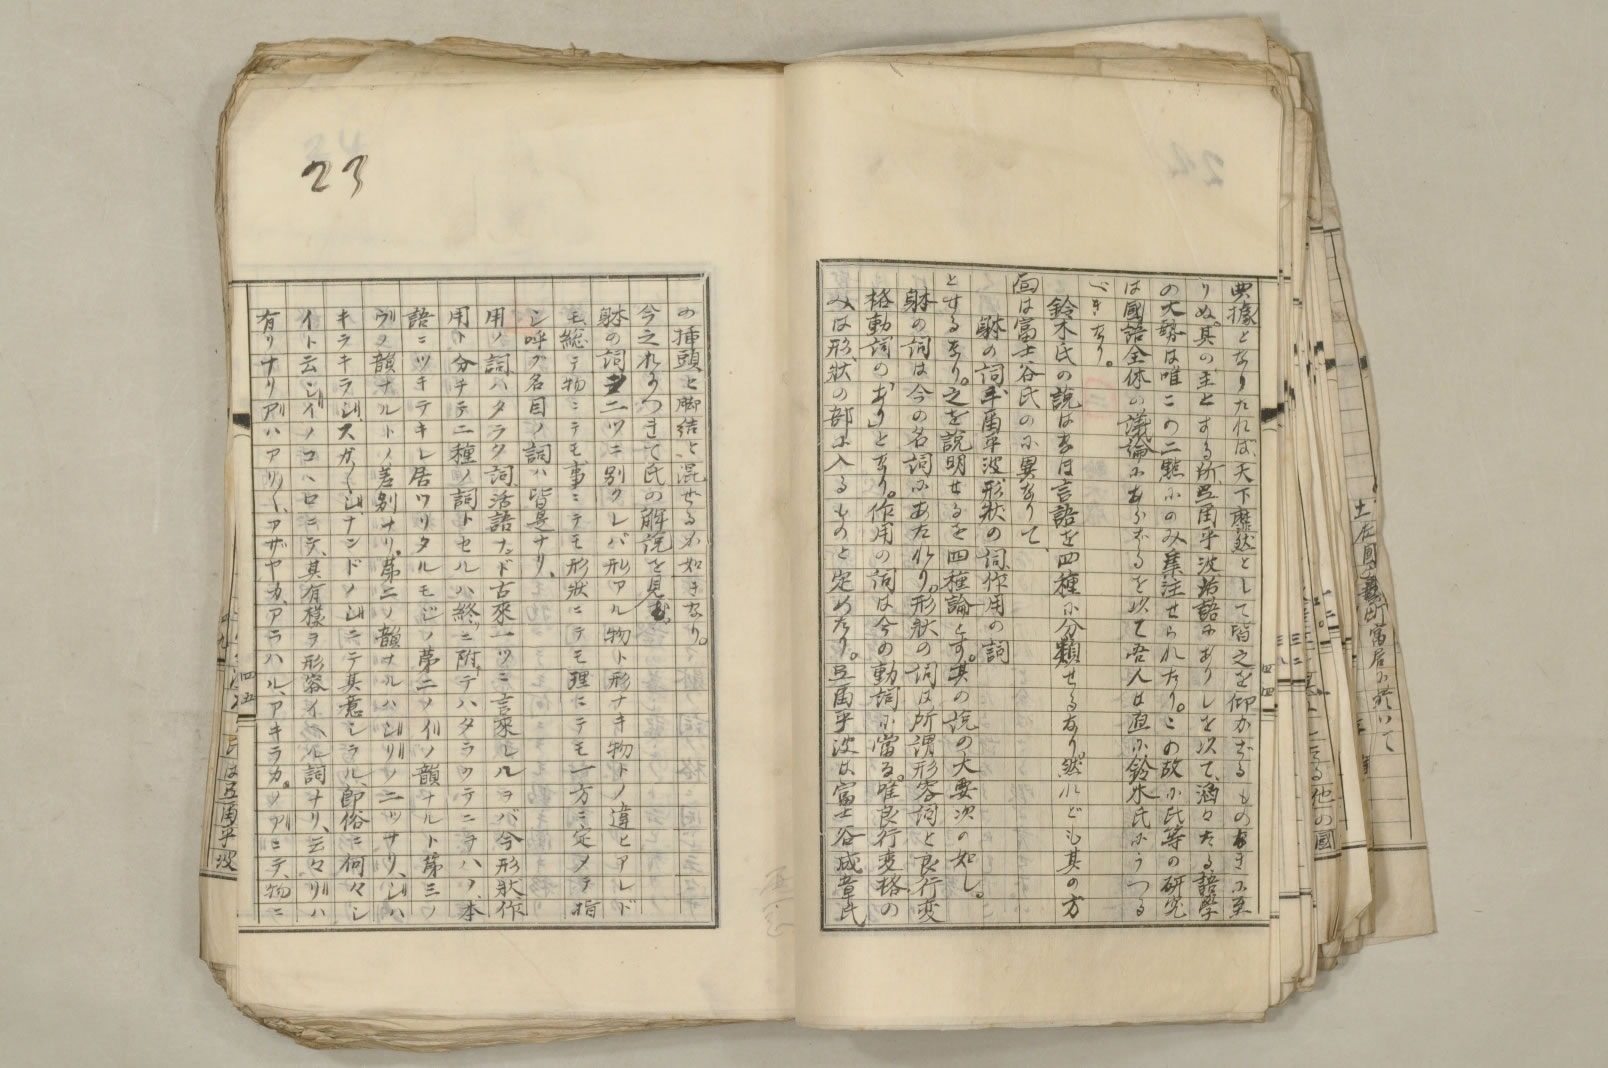 典據となりたれば、天下靡然として皆之を仰がざるものなきに至
りぬ。其の主とする所、弖爾乎波、活語にありしを以て、滔々たる語學
の大勢は唯この二點にのみ集注せられたり。この故に氏等の研究
は國語全体の議論にあらざるを以て吾人は直に鈴木氏にうつる
べきなり。
鈴木氏の説は亦言語を四種に分類せるなり。然れども其の方
面は富士谷氏のに異なりて、
躰の詞、弖爾乎波、形狀の詞、作用の詞
とせるなり。之を説明せるを四種論とす。其の説の大要次の如し。
躰の詞は今の名詞にあたれり。形狀の詞は所謂形容詞と良行変
格動詞の「あり」となり。作用の詞は今の動詞に當る。唯良行変格の
みは形狀の部に入るものと定めたり。弖爾乎波は富士谷成章氏
四四
23
の挿頭と脚結と混せる如きなり。
今之れにつきて氏の解説を見む。
躰の詞 二ツニ別クレバ形アル物ト形ナキ物トノ違ヒアレド
モ、総テ物ニテモ事ニテモ形狀ニテモ理ニテモ一方ニ定メテ指
シ呼ブ名目ノ詞ハ皆是ナリ、
用ノ詞ハタラク詞活語ナド古來一ツニ言來レルヲバ今形狀、作
用ト分チテ二種ノ詞トセルハ終ニ附テハタラクテニヲハノ、本
語ニツキテキレ居ワリタルモジノ第二ノイノ韻ナルト第三ノ
ウノ韻ナルトノ差別ナリ、第二ノ韻ナルハシリノ二ツナリ、シハ
キラキラシスガ〳〵シナンドノシニテ其意シラル、即俗ニ何々シ
イト云シイノコヘロニテ、其有様ヲ形容イヘル詞ナリ、云々リハ
有リナリアハアリ〳〵、アザヤカ、アラハル、アキラカ。ノアニテ物ニ
四五